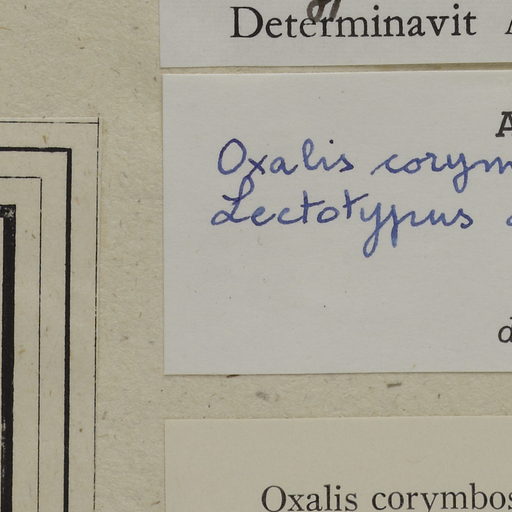 Determinavit
Oxalis corym
Lectotypus
Oxalis corymbos